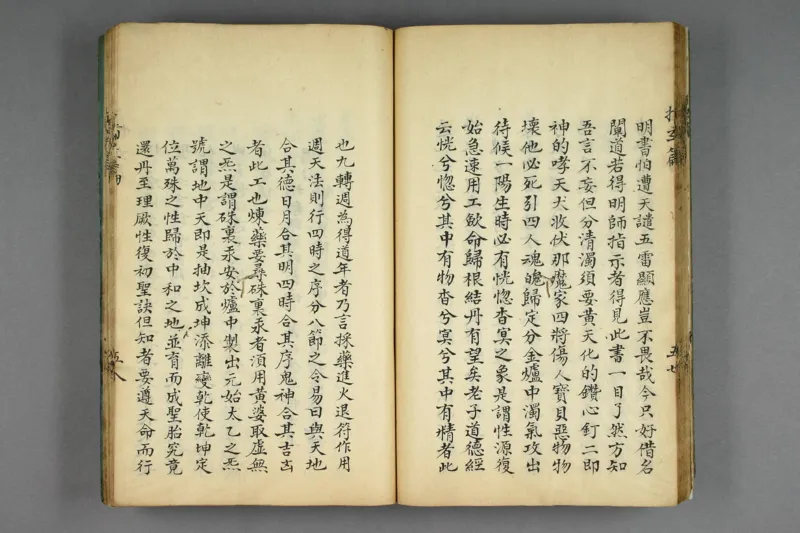 明書怕遭天譴五雷顯應豈不畏哉今只好借名
闡道若得明師指示者得見此書一目了然方知
吾言不妄但分清濁須要黃天化的鑽心釘二即
神的哮天犬收伏那魔家四將傷人寶貝惡物物
壞他必死引四人魂魄歸定分金爐中濁氣攻出
待候一陽生時必有恍惚杳冥之象是謂性源復
始急速用工歛命歸根結丹有望矣老子道德經
云恍兮惚兮其中有物杳兮冥兮其中有精者此
也九轉週為得道年者乃言採藥進火退符作用
週天法則行四時之序分八節之令易曰與天地
合其德日月合其明四時合其序鬼神合其吉凶
者此工也煉藥要尋硃裏汞者須用黃婆取虛無
之炁是謂硃裏汞安於爐中製出元始太乙之炁
號謂地中天即是抽坎成坤添離變乾使乾坤定
位萬殊之性歸於中和之地並育而成聖胎究竟
還丹至理厥性復初聖訣但知者要遵天命而行